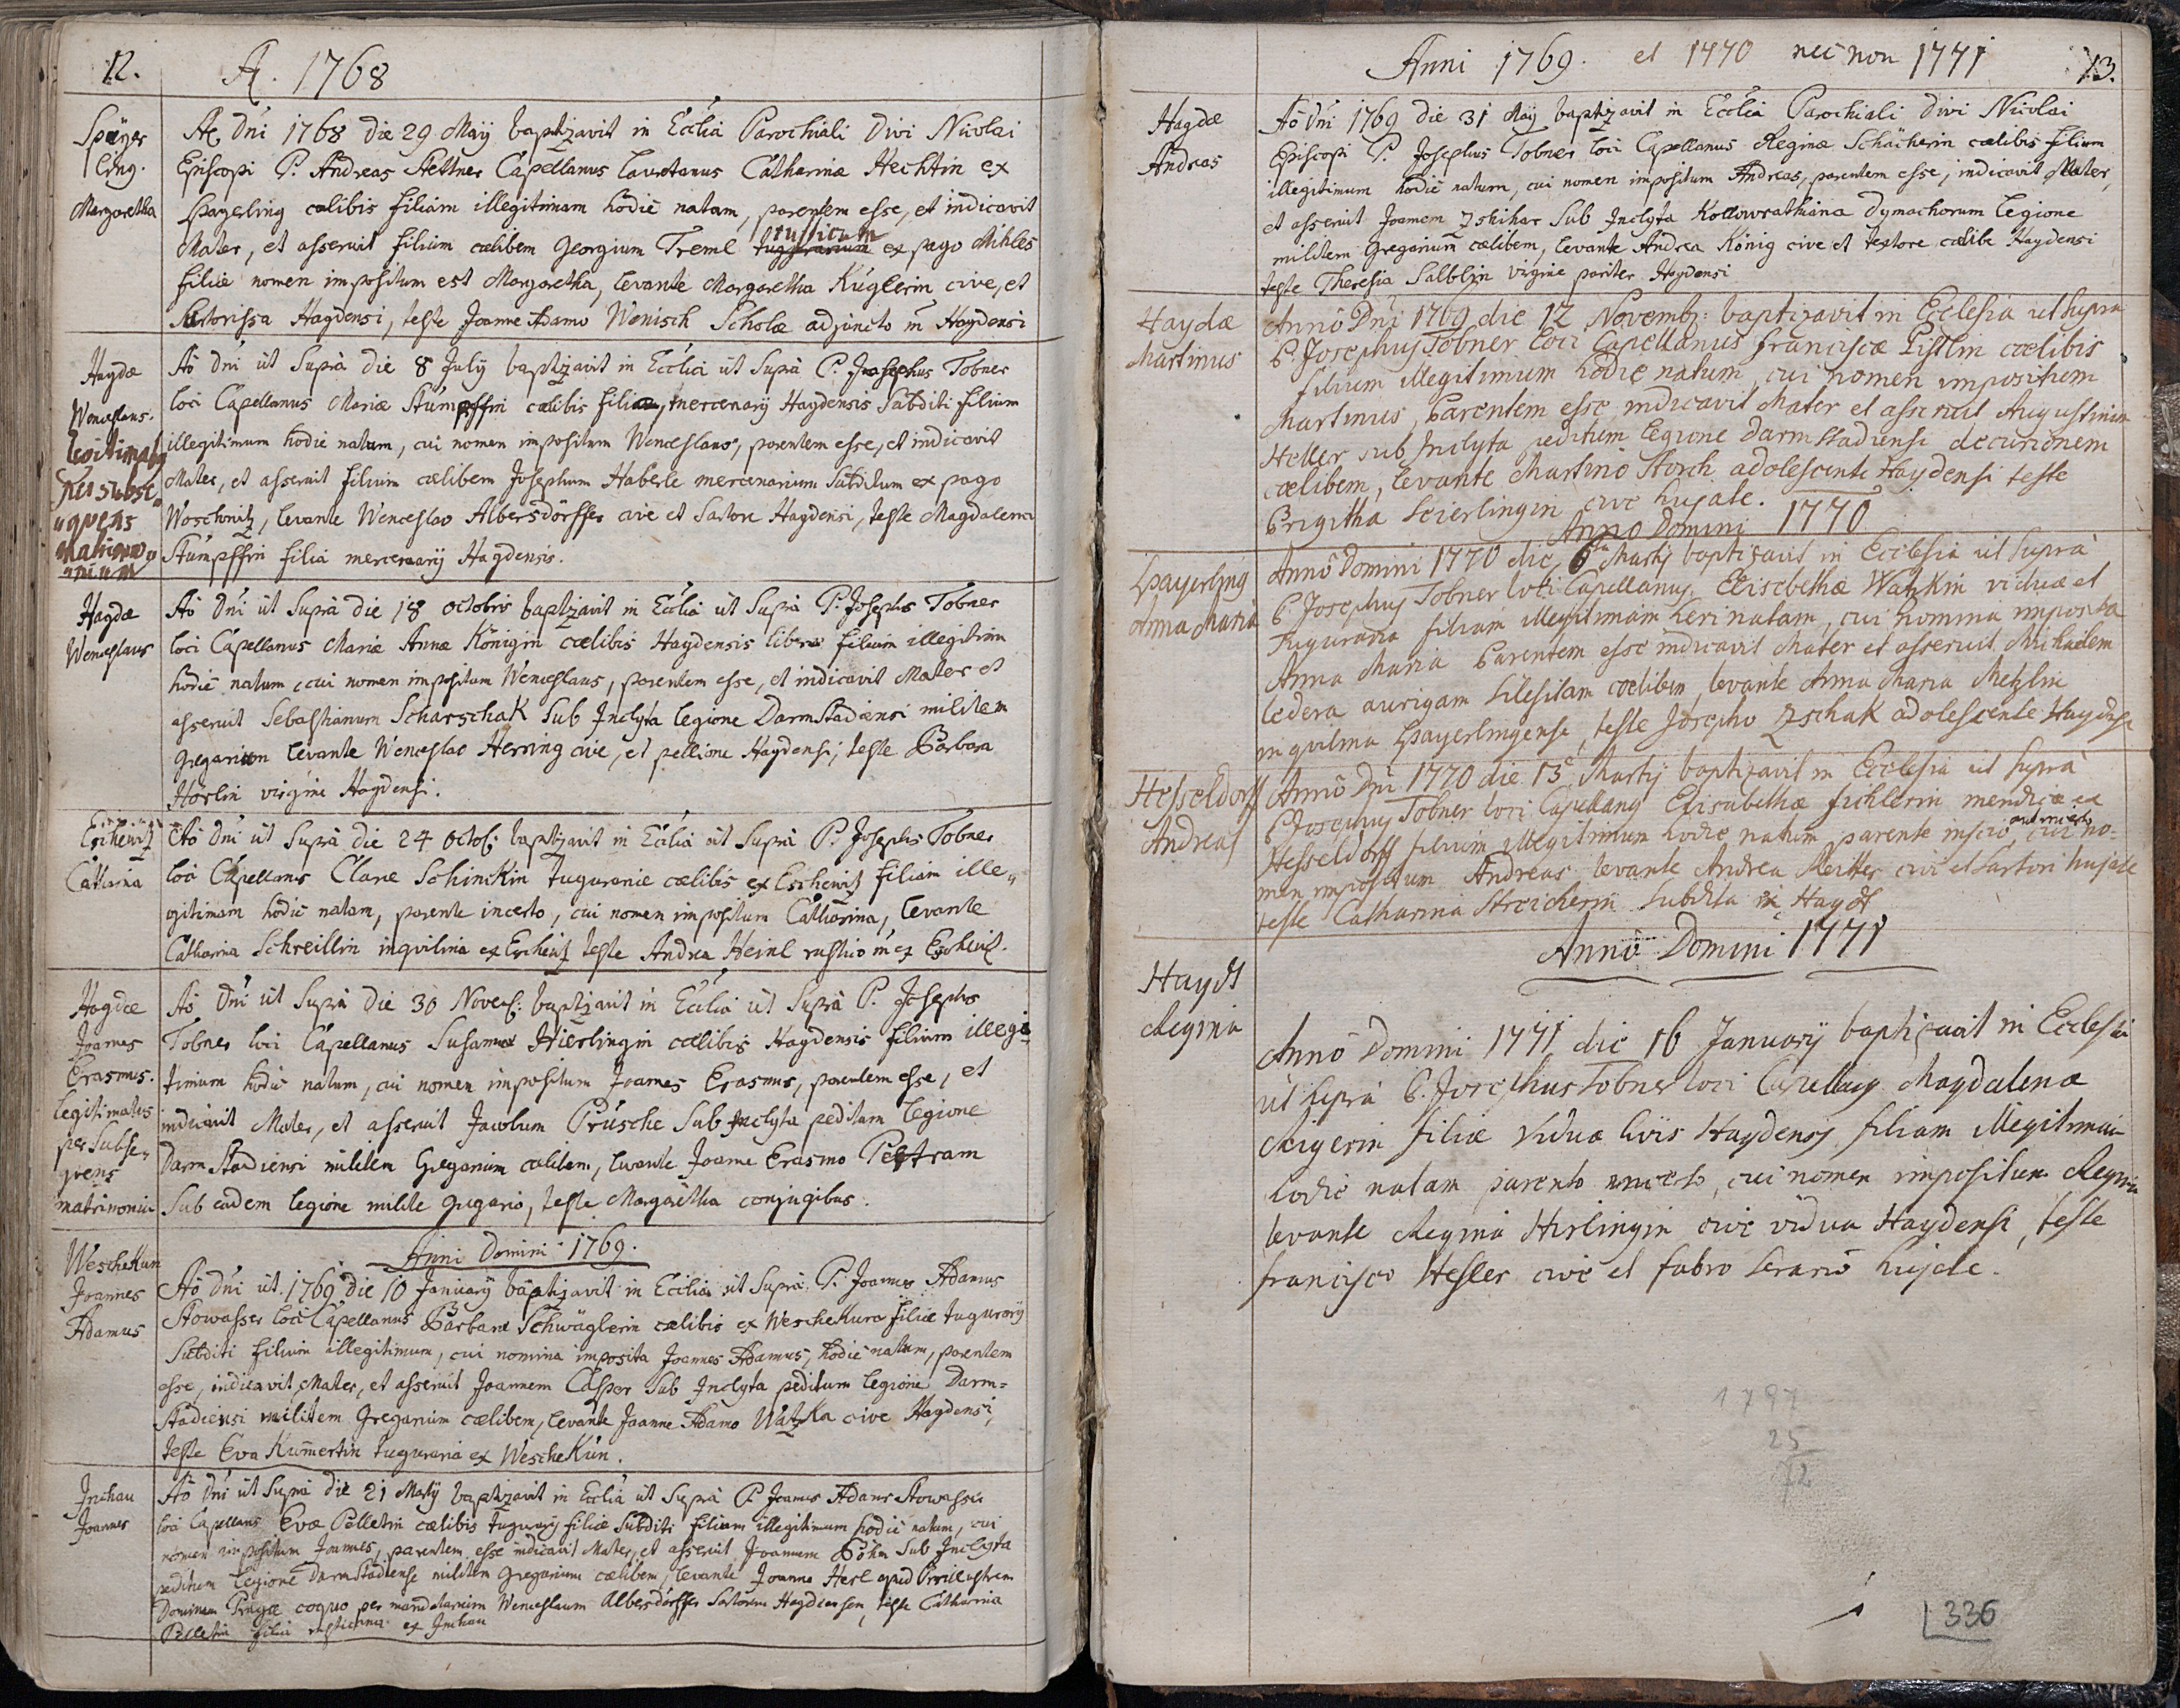 12.
A. 1768
Spayer
ling.
Margaretha
Aõ. Dni 1768 die 29 Maij baptizavit in Ecclia Parochiali Divi Nicolai
Episcopi P. Andreas Stettner Capellanus Catharinæ Hechtin ex
Spayerling cœlibis filiam illegitimam hodie natam, parentem esse, et indicavit
rusticum
Mater, et asseruit filium cœlibem Georgium Treml tugurarium ex pago Mihles
filiæ nomen impositum est Margaretha, levante Margaretha Kuglerin cive, et
Sartorissa Haydensi, teste Joanne Adamo Wenisch Scholæ adjuncto in Haydensi
Haydæ
Wenceslaus.
legitimatus
per subse=
quens
matrimo=
nium
Aõ Dni ut Supra die 8 July baptizavit in Ecclia ut Supra P. Josephus Tobner
loci Capellanus Mariæ Stumpffin cœlibis filiæ, mercenarij Haydensis Subditi filium
illegitimum hodie natum, cui nomen impositum Wenceslaus, parentem esse, et indicavit
Mater, et asseruit filium cœlibem Josephum Haberle mercenarium Subditum ex pago
Woschnitz, levante Wenceslao Albersdörffer cive et Sartore Haydensi, teste Magdalena
Stumpffin filia mercenarij Haydensis.
Haydæ
Wenceslaus
Aõ Dni ut Supra die 18 octobris baptizavit in Ecclia ut Supra P. Josephus Tobner
loci Capellanus Mariæ Annæ Königin cœlibis Haydensis liberæ filium illegitimum
hodie natum, cui nomen impositum Wenceslaus, parentem esse, et indicavit Mater et
asseruit Sebastianum Scharschak Sub Inclyta legione Darmstadiensi militem
gregarium levante Wenceslao Herring cive, et pellione Haydensi, teste Barbara
Hörlin virgine Haydensi.
Eschewitz
Catharina
Aõ Dni ut Supra die 24 Octob: baptizavit in Ecclia ut Supra P. Josephus Tobner
loci Capellanus Claræ Schinckin tugurariæ cœlibis ex Eschewitz filiam ille=
gitimam hodie natam, parente incerto, cui nomen impositum Catharina, levante
Catharina Schreillin inquilina ex Eschewitz teste Andrea Heinl rustico ex Eschewitz.
Haydæ
Joannes
Erasmus.
legitimatus
per Subse=
quens
matrimonium
Aõ Dni ut Supra die 30 Novemb: baptizavit in Ecclia ut Supra P. Josephus
Tobner loci Capellanus Susannæ Hierlingin cœlibis Haydensis filium illegi=
timum hodie natum, cui nomen impositum Joannes Erasmus, parentem esse, et
indicavit Mater, et asseruit Jacobum Prusche Sub Inclyta peditum legione
Darmstadiensi militem Gregarium cœlibem, levante Joanne Erasmo Peltram
Sub eadem legione milite gregario, teste Margaretha conjugibus.
Anni Domini 1769.
Weschekun
Joannes
Adamus
Aõ Dni ut. 1769 die 10 January baptizavit in Ecclia ut Supra P. Joannes Adamus
Stowasser loci Capellanus Barbaræ Schwäglerin cœlibis ex Weschekura filiæ tugurarij
Subditi filium illegitimum, cui nomina imposita Joannes Adamus, hodie natum, parentem
esse, indicavit Mater, et asseruit Joannem Casper Sub Inclyta peditum legione Darm=
stadiensi militem Gregarium cœlibem, levante Joanne Adamo Watzka cive Haydensi,
teste Eva Kumertin tuguraria ex Weschekun.
Inchau
Joannes
Aõ Dni ut Supra die 21 Martij baptizavit in Ecclia ut Supra P. Joannes Adamus Stowasser
loci Capellanus Evæ Pelletin cœlibis tugurarij filiæ Subditi filium illegitimum hodie natum, cui
nomen impositum Joannes, parentem esse indicavit Mater, et asseruit Joannem Böhm Sub Inclyta
peditum legione Darmstadiense militem Gregarium cœlibem, levante Joanne Herl apud Perillustrem
Dominum Pragæ coquo per mandatarium Wenceslaum Albersdörffer Sartorem Haydensem, teste Catharina
Pelletin filia rusticana ex Inchau
Anni 1769. et 1770 nec non 1771
13.
Haydæ
Andreas
Aõ Dni 1769 die 31 Maij baptizavit in Ecclia Parochiali Divi Nicolai
Episcopi P. Josephus Tobner loci Capellanus Reginæ Schächerin cœlibis filium
illegitimum hodie natum, cui nomen impositum Andreas, parentem esse, indicavit Mater,
et asseruit Joannem Zshihar Sub Inclyta Kollowrathiana Dymachorum legione
militem Gregarium cœlibem, levante Andrea König cive et textore cœlibe Haydensi
teste Theresia Salblzin virgine pariter Haydensi
Haydæ
Martinus
Anno Dni 1769 die 12 Novemb: baptizavit in Ecclesia ut Supra
P. Josephus Tobner loci Capellanus Franciscæ Pistlin cœlibis
filium illegitimum hodie natum, cui nomen impositum
Martinus, Parentem esse indicavit Mater et asseruit Augustinum
Heller sub Inclyta peditum legione Darmstadiensi decurionem
cœlibem, levante Martino Storch adolescente Haydensi teste
Brigitha Seierlingin cive hujate.
Anno Domini 1770
Spayerling
Anna Maria
Anno Domini 1770 die 6 Martij baptizavit in Ecclesia ut Supra
P. Josephus Tobner loci Capellanus Elisabethæ Watzkin viduæ et
Tuguraria filiam illegitimam heri natam, cui nomina imposita
Anna Maria Parentem esse indicavit Mater et asseruit Michaelem
ledera aurigam Silesitam cœlibem, levante Anna Maria Metzlin
inquilina Spayerlingense, teste Josepho Zschak adolescente Haydensi
Hesseldorff
Andreas
Anno Dni 1770 die 13 Martij baptizavit in Ecclesia ut Supra
P. Josephus Tobner loci Capellanus Elisabethæ Fichlerin mendicæ ex
aut incerto
Hesseldorff filium illegitimum hodie natum parente inscio, cui no=
men impositum Andreas levante Andrea Reitter cive et Sartori hujate
teste Catharina Streicherin Subdita ex Hayd
Anno Domini 1771
Hayd
Regina
Anno Domini 1771 die 16 January baptizavit in Ecclesia
ut supra P. Josephus Tobner loci Capellanus Magdalenæ
Rigerin filiæ viduæ civis Haydensis filiam illegitimam
hodie natam parento incerto, cui nomen impositum Regina
levante Regina Hirlingin cive vidua Haydensi, teste
Francisco Hesler cive et fabro serario hujate.
1797
25
72
336